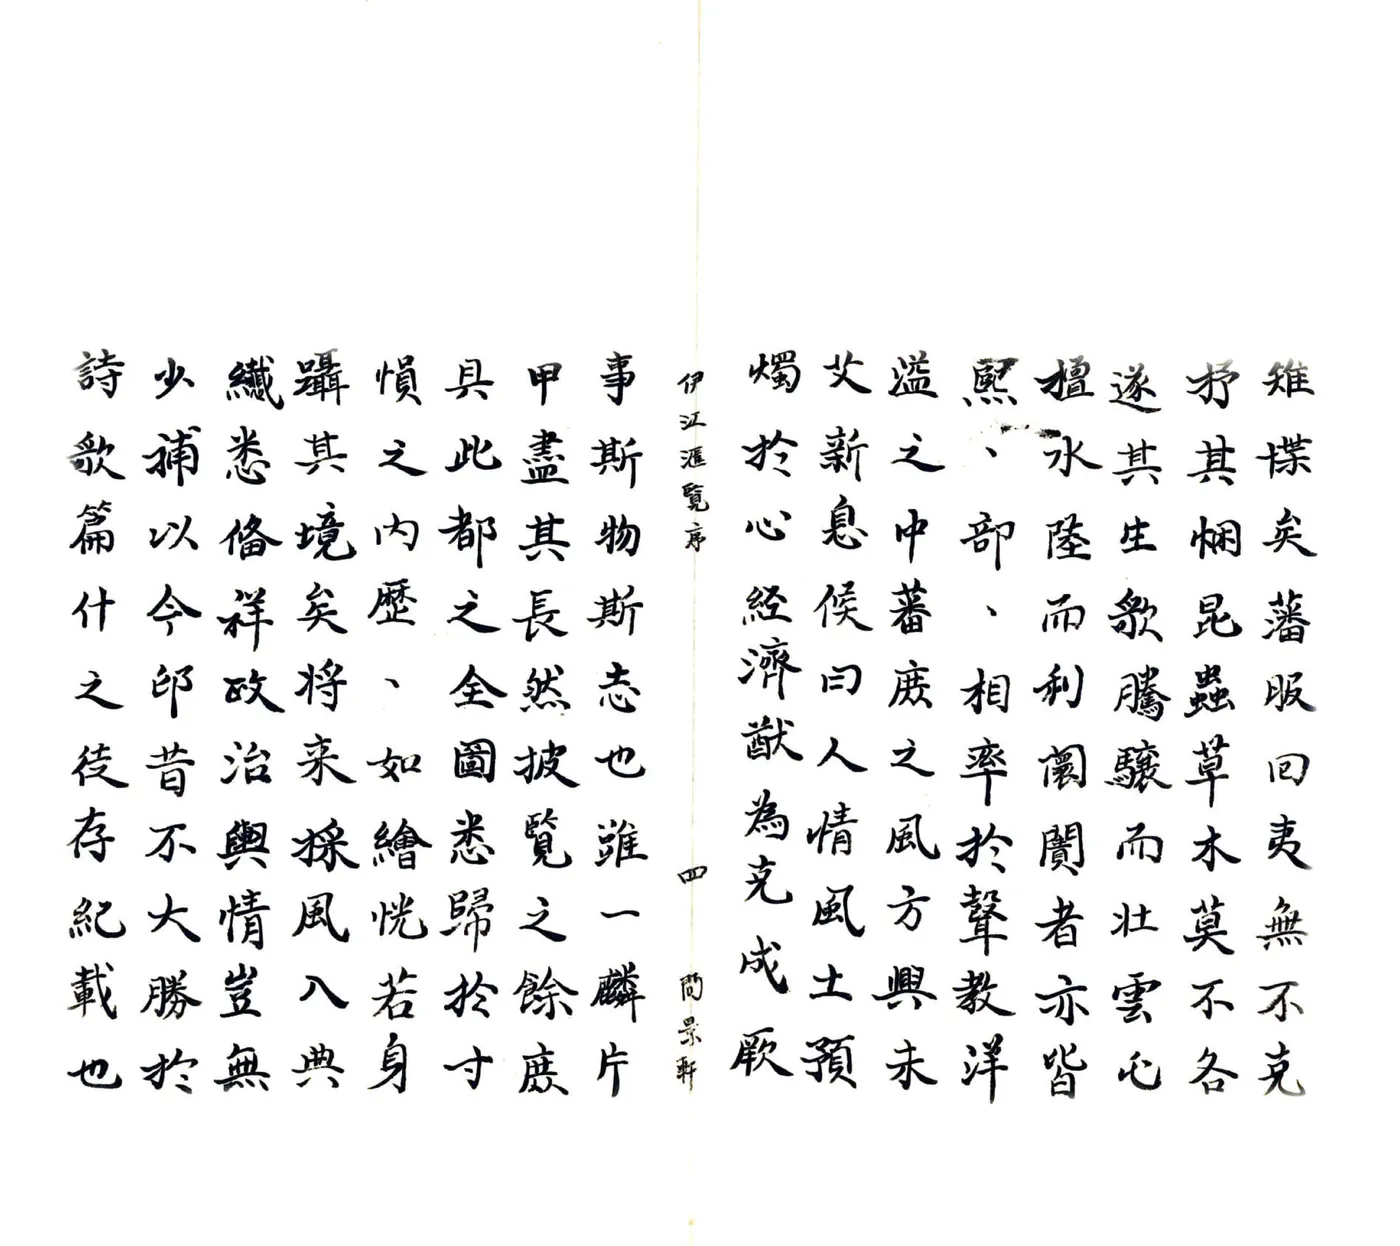 雉堞矣藩服回夷無不克
抒其悃昆蟲草木莫不各
遂其生歌騰驤而壯雲屯
擅水陸而利闤闠者亦皆
熙、部、相率於聲教洋
溢之中蕃庶之風方興未
艾新息候曰人情風土預
燭於心經濟猷為克成厥
伊江滙覽序
四
問景軒
事斯物斯志也雖一麟片
甲盡其長然披覽之餘庶
具此都之全圖悉歸於寸
愪之內歷、如繪恍若身
躡其境矣將来採風入典
纖悉俻祥政治輿情豈無
少補以今卬昔不大勝於
詩歌篇什之徒存紀載也